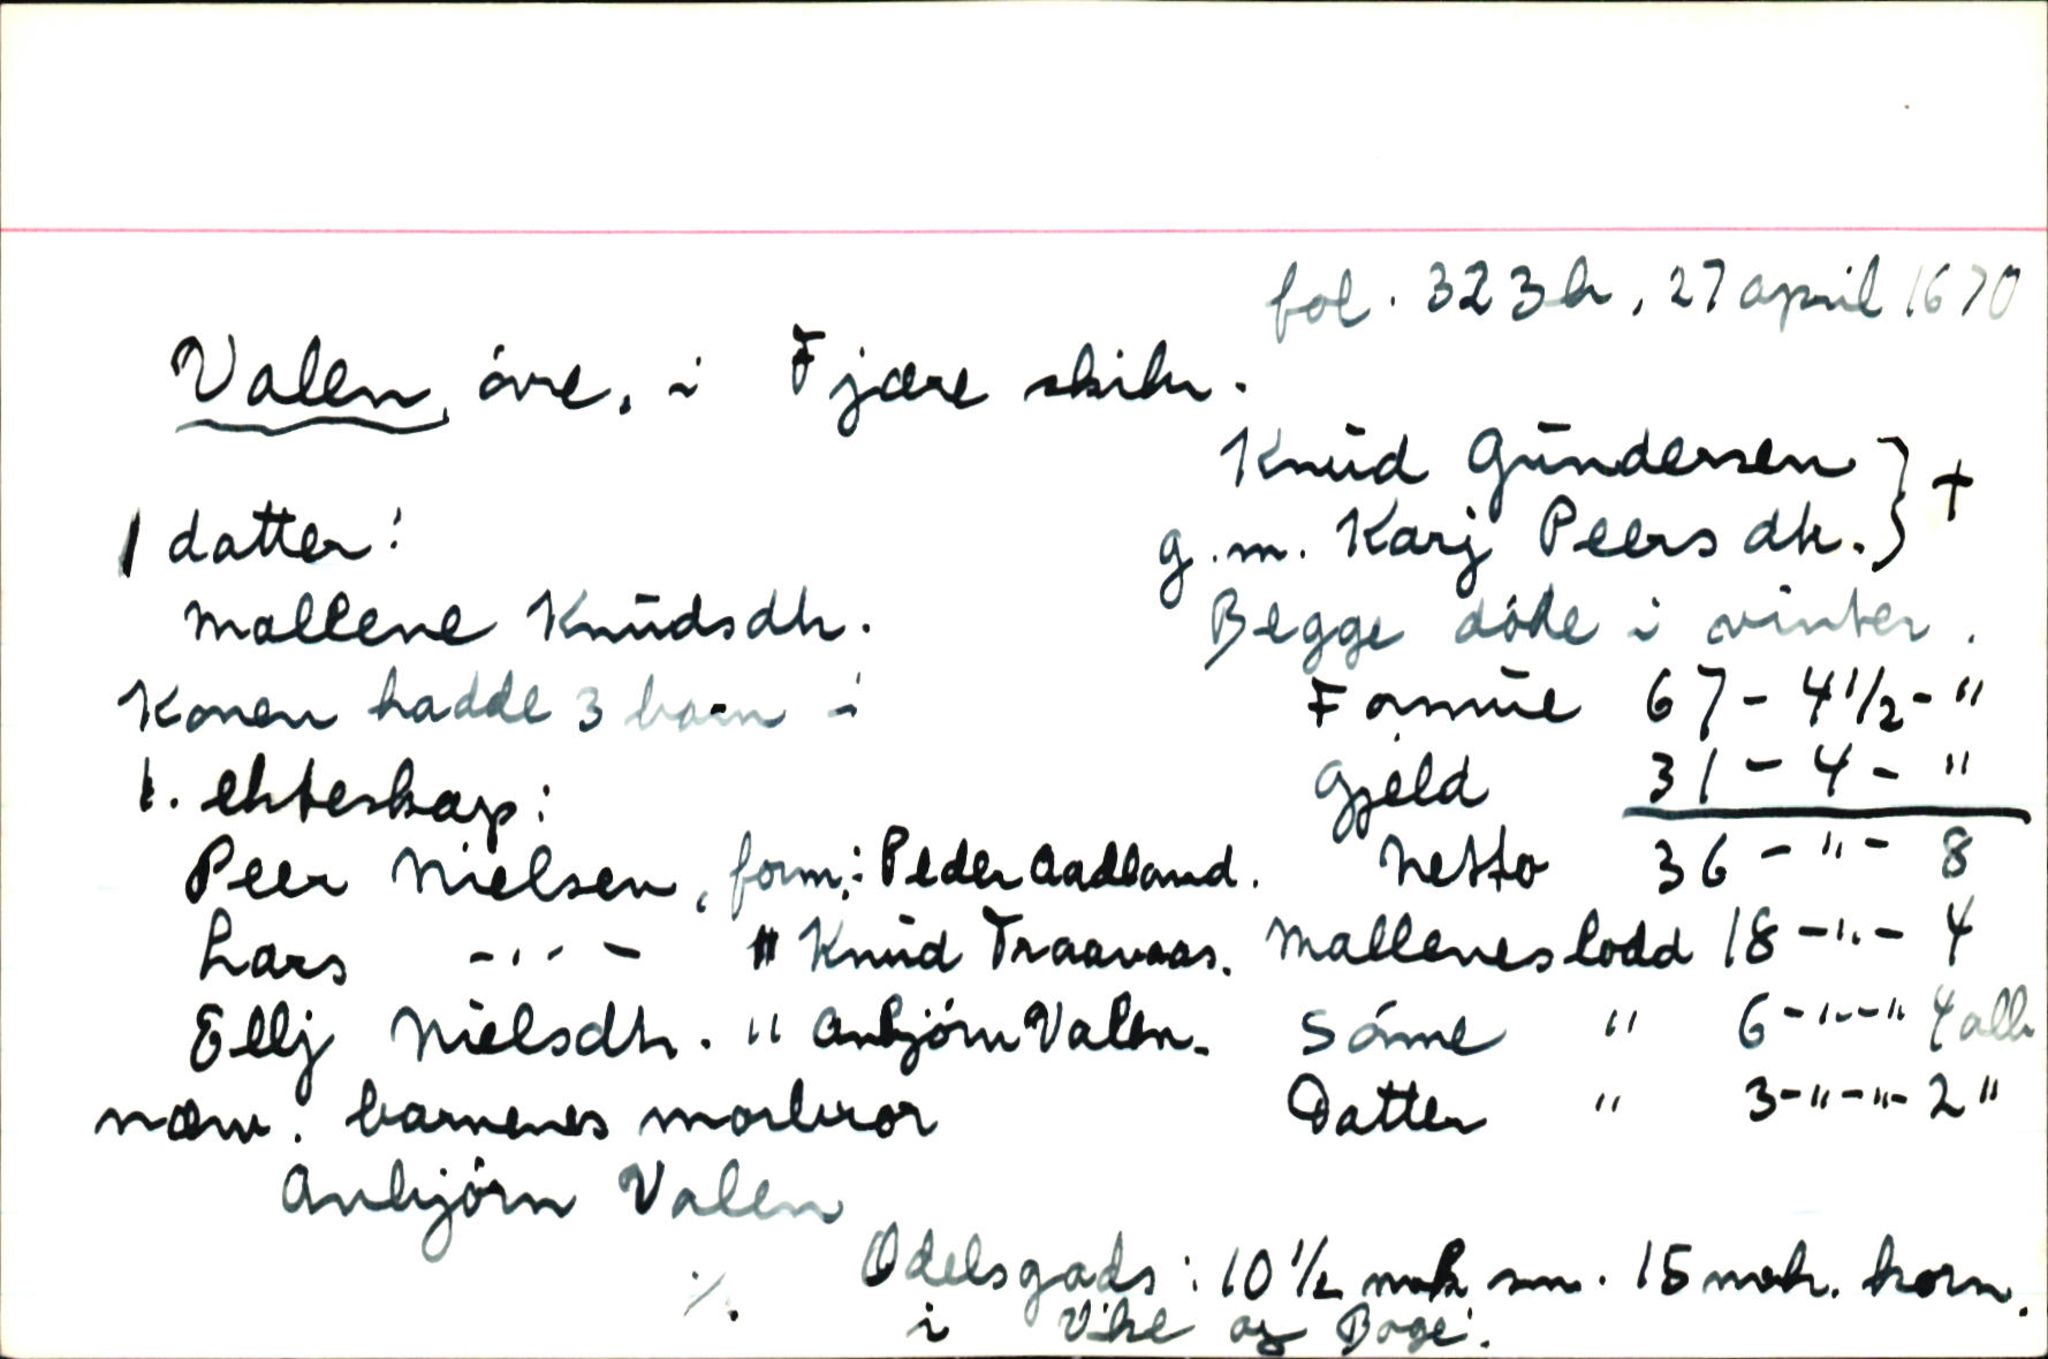 fol. 323b, 27 april 1670
Valen, övre, i Fjære skibr.
Knud Gundersen } +
g.m. Karj Peersdtr. }
Begge döde i vinter.
1 datter:
Mallene Knudsdtr.
Konen hadde 3 barn i
1. ekteskap:
Peer Nielsen, form.: Peder Aadland.
Lars -"- " Knud Traavaas.
Ellj Nielsdtr. " Anbjörn Valen.
nærv. barnenes morbror
Anbjörn Valen
Formue 67 - 4 1/2 - "
Gjeld 31 - 4 - "
Netto 36 - " - 8
Mallenes lodd 18 - " - 4
Sönne " 6 - " - " 4 alb
Datter " 3 - " - " - 2 "
Odelsgods: 10 1/2 mrk sm. 15 mrk. korn.
i Vike og Boge.
./.